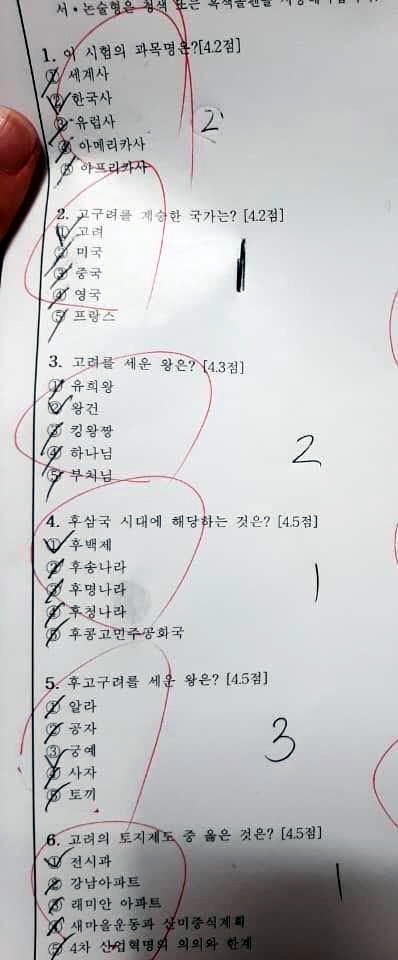 서·논술형은 청색 또는 흑색볼펜을
1. 이 시험의 과목명은?[4.2점]
① 세계사
② 한국사
③ 유럽사
④ 아메리카사
⑤ 아프리카사
2
2. 고구려를 계승한 국가는? [4.2점]
① 고려
② 미국
③ 중국
④ 영국
⑤ 프랑스
1
3. 고려를 세운 왕은? [4.3점]
① 유희왕
② 왕건
③ 킹왕짱
④ 하나님
⑤ 부처님
2
4. 후삼국 시대에 해당하는 것은? [4.5점]
① 후백제
② 후송나라
③ 후명나라
④ 후청나라
⑤ 후콩고민주공화국
1
5. 후고구려를 세운 왕은? [4.5점]
① 알라
② 공자
③ 궁예
④ 사자
⑤ 토끼
3
6. 고려의 토지제도 중 옳은 것은? [4.5점]
① 전시과
② 강남아파트
③ 래미안 아파트
④ 새마을운동과 산미증식계획
⑤ 4차 산업혁명의 의의와 한계
1